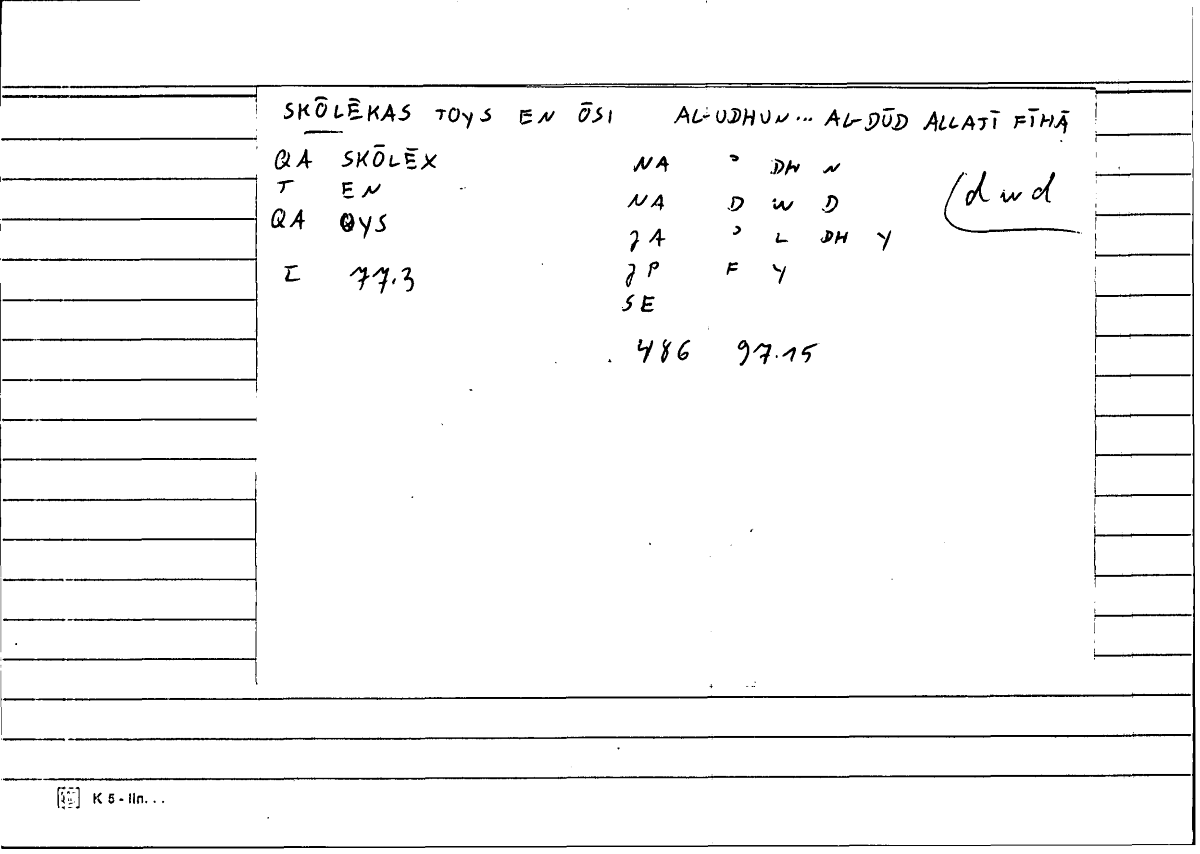 SKŌLĒKAS TOYS EN ŌSI AL-UDHUN... AL-DŪD ALLATĪ FĪHĀ
QA SKŌLĒX NA ʾ DH N
T EN NA D W D (dwd
QA OYS JA ʾ L DH Y
JP F Y
I 77.3
SE
486 97.15
K 5 - lin...